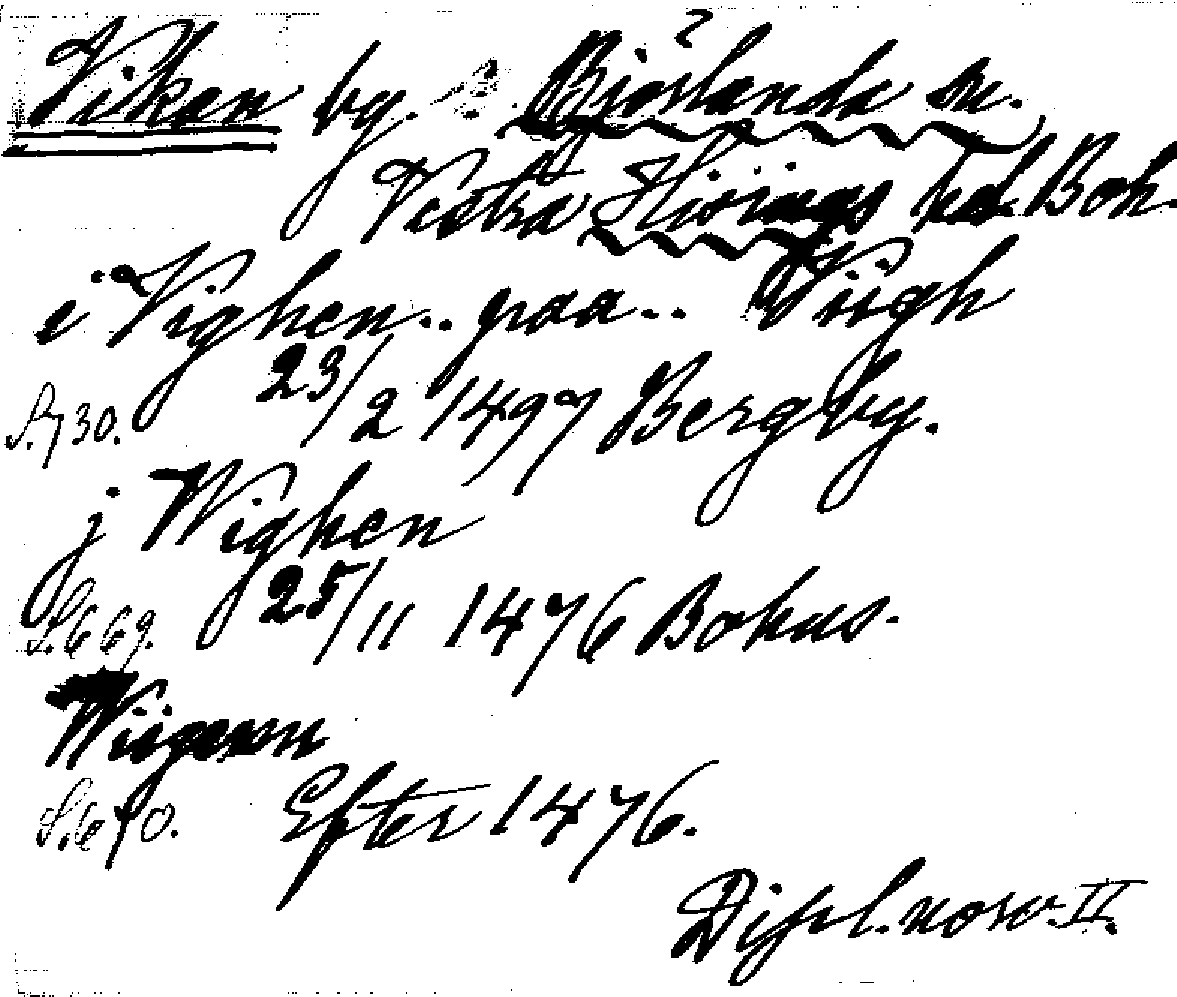 ?
Viken by. Björlanda sn.
Västra Hisings hd. Boh.
i Vighen .. paa .. Viigh
S. 730. 23/2 1497 Bergby.
j Wighen
S. 669. 25/11 1476 Bohus.
S. 670. Efter 1476.
Dipl. norv. II.